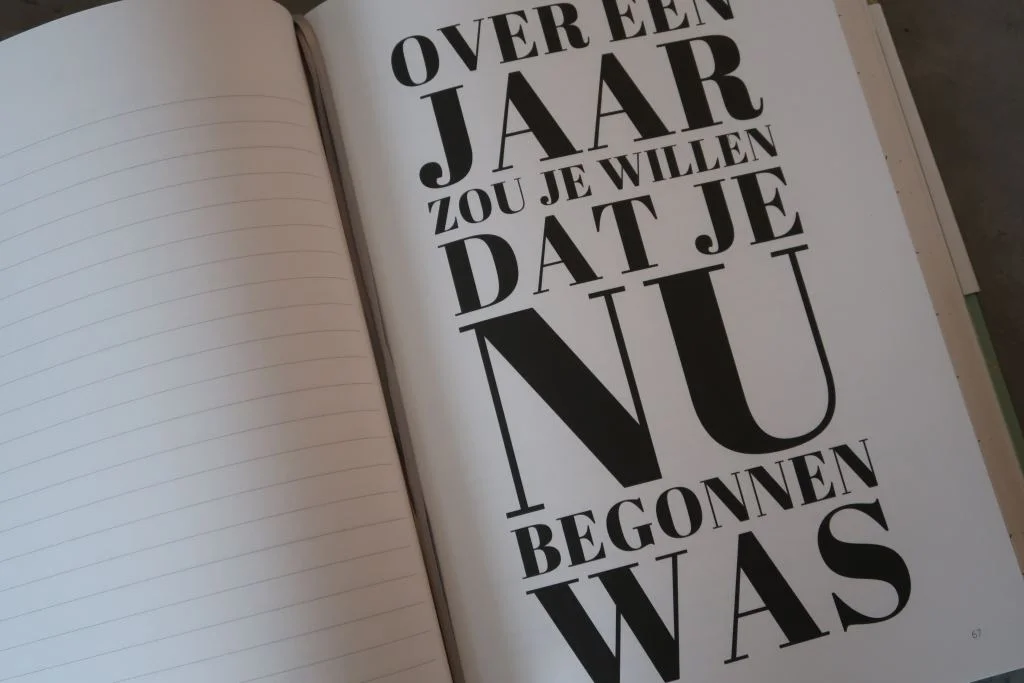 OVER EEN
JAAR
ZOU JE WILLEN
DAT JE
NU
BEGONNEN
WAS
67